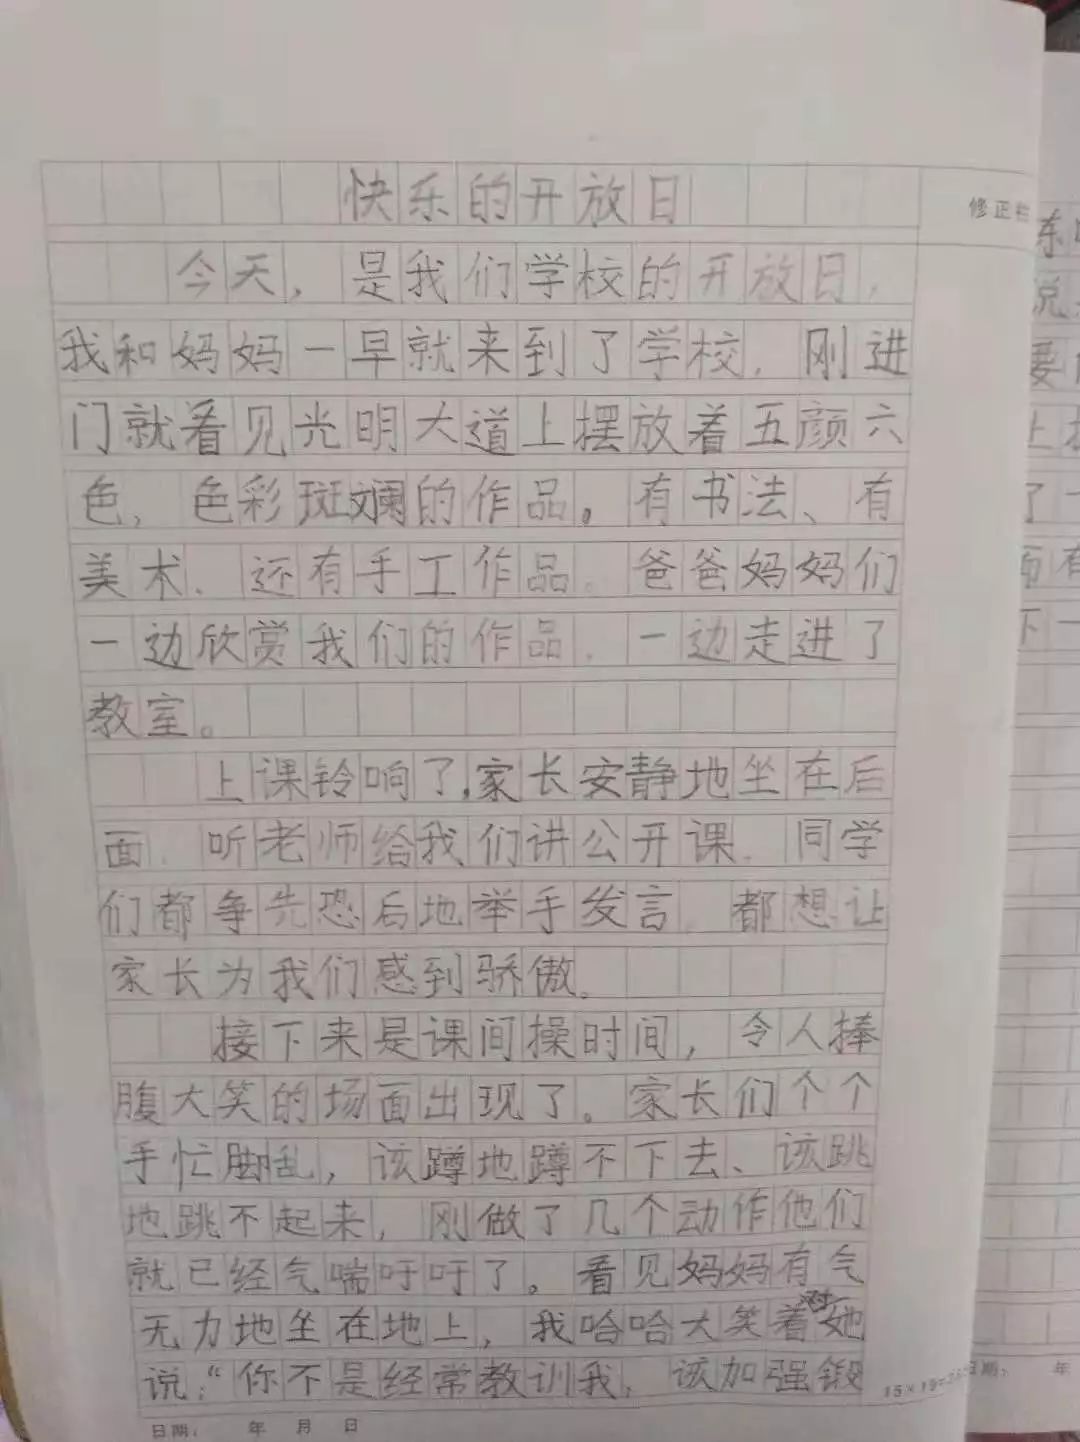 快乐的开放日
修正栏
今天，是我们学校的开放日，
我和妈妈一早就来到了学校，刚进
门就看见光明大道上摆放着五颜六
色，色彩斑斓的作品。有书法、有
美术、还有手工作品。爸爸妈妈们
一边欣赏我们的作品，一边走进了
教室。
上课铃响了，家长安静地坐在后
面，听老师给我们讲公开课，同学
们都争先恐后地举手发言，都想让
家长为我们感到骄傲。
接下来是课间操时间，令人捧
腹大笑的场面出现了。家长们个个
手忙脚乱，该蹲地蹲不下去、该跳
地跳不起来，刚做了几个动作他们
就已经气喘吁吁了。看见妈妈有气
无力地坐在地上，我哈哈大笑着对她
说：“你不是经常教训我，该加强锻
日期： 年 月 日
日期： 年